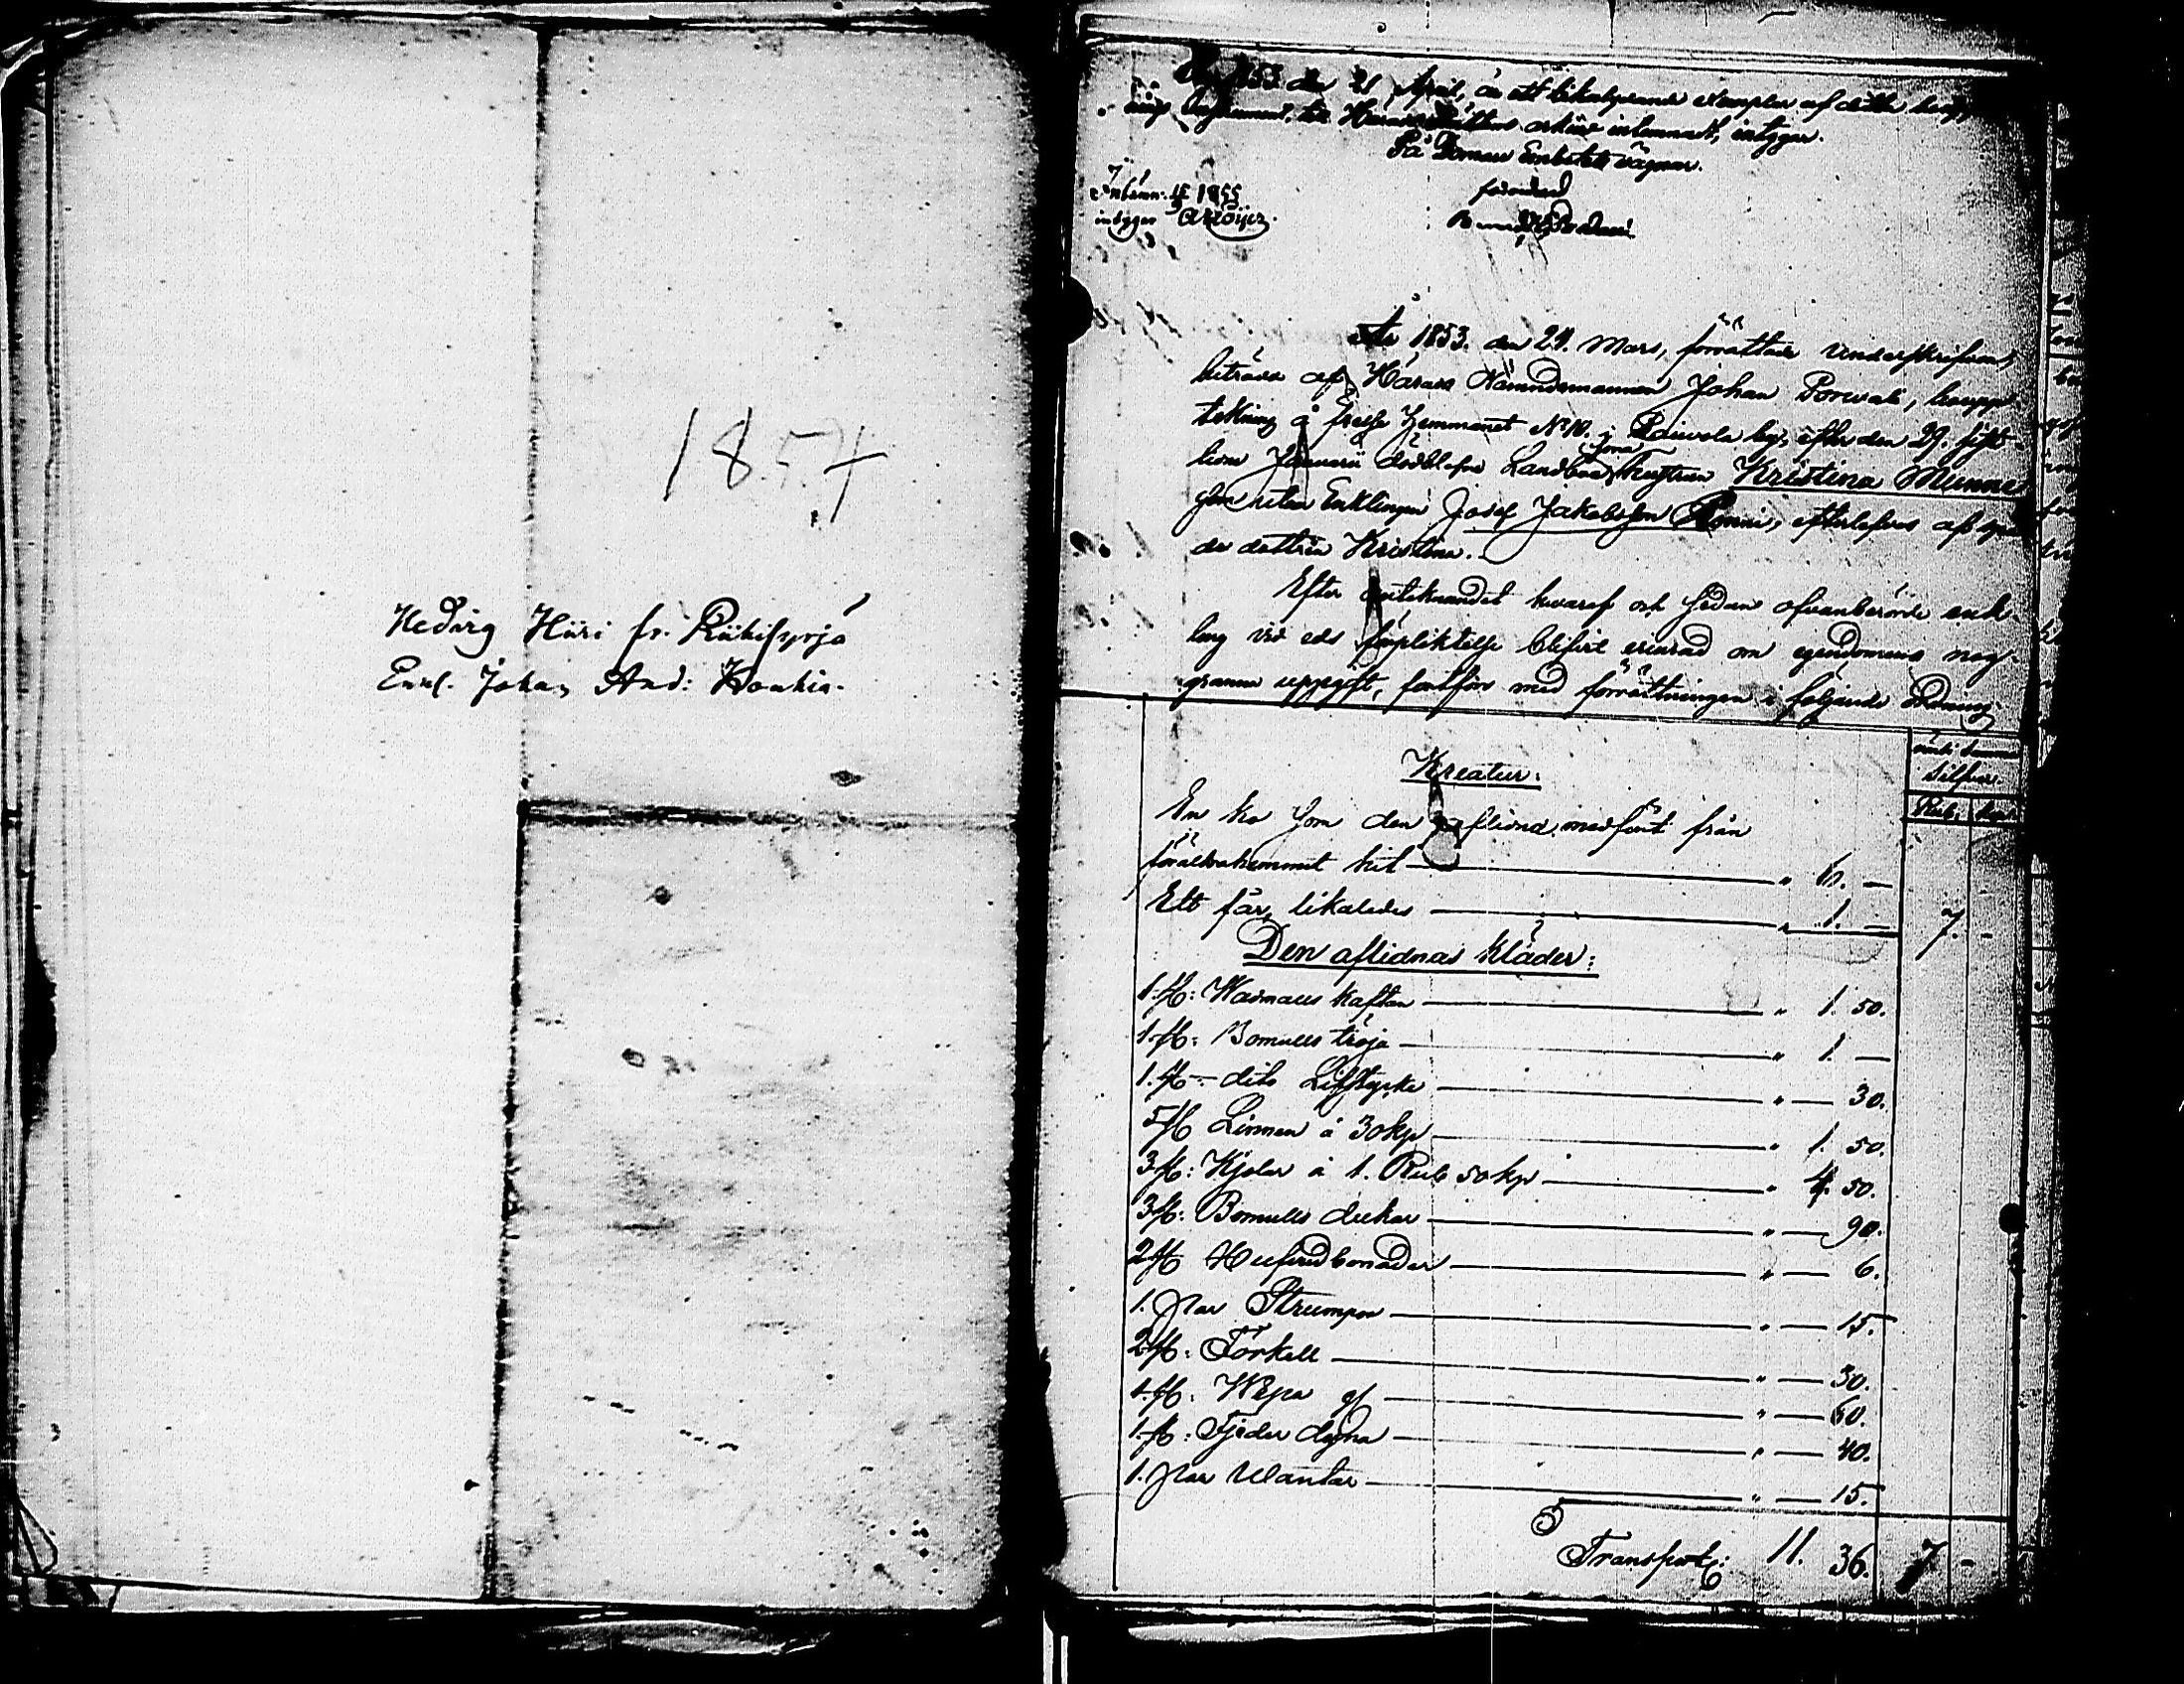 1854
Hedvig Hiiri fr. Riihisyrjä
Enkl. Johan And: Koukia.
1853 den 21 April, är ett likalydande exemplar af detta
instrument, till Häradsrättens arkiv inlemnadt, intygar.
På Domare Embetets vägnar.
Inlemn. 1855
intygar
År 1853. den 29. Mars, förrättade Underskrifven,
biträdd af Härads Nämndemannen Johan Porvali, boupp
tekning å frelse Hemmanet No 10. i Raivola by, efter den 29. sist-
lidne Januarii dödblefne Landbou hustrun Kristina Munne
som utom Enklingen Josef Jakobsson Ronni, efterlefves af spä
da dottren Kristina.
Efter anteknandet hvaraf och sedan ofvanberörde enk
ling vid eds förpliktelse blifvit erinrad om egendomens nog-
granna uppgift, fortfor med förrättningen i följande Ordning
Silfver.
Rub. kop.
Kreatur:
En ko som den aflidna medfört från
föräldrahemmet hit — " 6. —
Ett får, likaledes — " 1. — 7. -
Den aflidnas kläder:
1. st: Wadmals kaftan — " 1. 50.
1. st: Bomulls tröja — " 1. —
1. st— dito Lifstycke — " — 30.
5 st Linnen à 30 kp — " 1. 50.
3 st: Kjolar à 1. Rub 50 kp — " 4. 50.
3 st: Bomulls dukar — " — 90.
2 st Hufvudbonader — " — 6.
1. par Strumpor — " — 15.
2 st: Förkell — " — 30.
1. st: Wepa — " — 60.
1. st: Fjeder dyna — " — 40.
1. par Wantar — " — 15.
Transport: 11. 36. 7 -